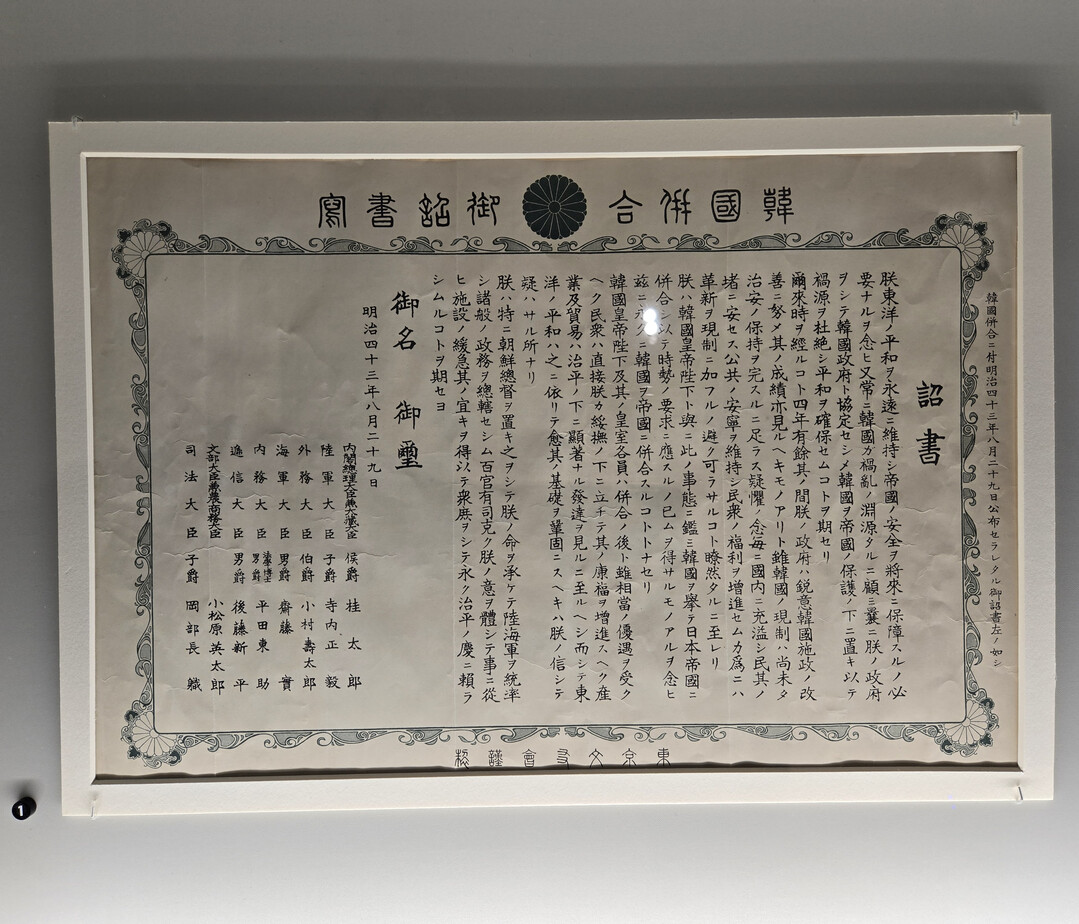 韓國併合御詔書寫
韓國併合ニ付明治四十三年八月二十九日公布セラレタル御詔書左ノ如シ
詔書
朕東洋ノ平和ヲ永遠ニ維持シ帝國ノ安全ヲ將來ニ保障スルノ必
要ナルヲ念ヒ又常ニ韓國カ禍亂ノ淵源タルニ顧ミ曩ニ朕ノ政府
ヲシテ韓國政府ト協定セシメ韓國ヲ帝國ノ保護ノ下ニ置キ以テ
禍源ヲ杜絶シ平和ヲ確保セムコトヲ期セリ
爾來時ヲ經ルコト四年有餘其ノ間朕ノ政府ハ鋭意韓國施政ノ改
善ニ努メ其ノ成績亦見ルヘキモノアリト雖韓國ノ現制ハ尚未タ
治安ノ保持ヲ完スルニ足ラス疑懼ノ念毎ニ國内ニ充溢シ民其ノ
堵ニ安セス公共ノ安寧ヲ維持シ民衆ノ福利ヲ増進セムカ爲ニハ
革新ヲ現制ニ加フルノ避ク可ラサルコト瞭然タルニ至レリ
朕ハ韓國皇帝陛下ト與ニ此ノ事態ニ鑑ミ韓國ヲ擧テ日本帝國ニ
併合シ以テ時勢ノ要求ニ應スルノ已ムヲ得サルモノアルヲ念ヒ
茲ニ永久ニ韓國ヲ帝國ニ併合スルコトトナセリ
韓國皇帝陛下及其ノ皇室各員ハ併合ノ後ト雖相當ノ優遇ヲ受ク
ヘク民衆ハ直接朕カ綏撫ノ下ニ立チテ其ノ康福ヲ増進スヘク産
業及貿易ハ治平ノ下ニ顯著ナル發達ヲ見ルニ至ルヘシ而シテ東
洋ノ平和ハ之ニ依リテ愈其ノ基礎ヲ鞏固ニスヘキハ朕ノ信シテ
疑ハサル所ナリ
朕ハ特ニ朝鮮總督ヲ置キ之ヲシテ朕ノ命ヲ承ケテ陸海軍ヲ統率
シ諸般ノ政務ヲ總轄セシム百官有司克ク朕ノ意ヲ體シテ事ニ從
ヒ施設ノ緩急其ノ宜キヲ得以テ衆庶ヲシテ永ク治平ノ慶ニ賴ラ
シムルコトヲ期セヨ
御名 御璽
明治四十三年八月二十九日
内閣總理大臣兼大藏大臣 侯爵 桂太郎
陸軍大臣 子爵 寺内正毅
外務大臣 伯爵 小村壽太郎
海軍大臣 男爵 齋藤實
内務大臣 男爵 平田東助
遞信大臣 男爵 後藤新平
文部大臣兼農商務大臣 小松原英太郎
司法大臣 子爵 岡部長職
東京文友會謹
1